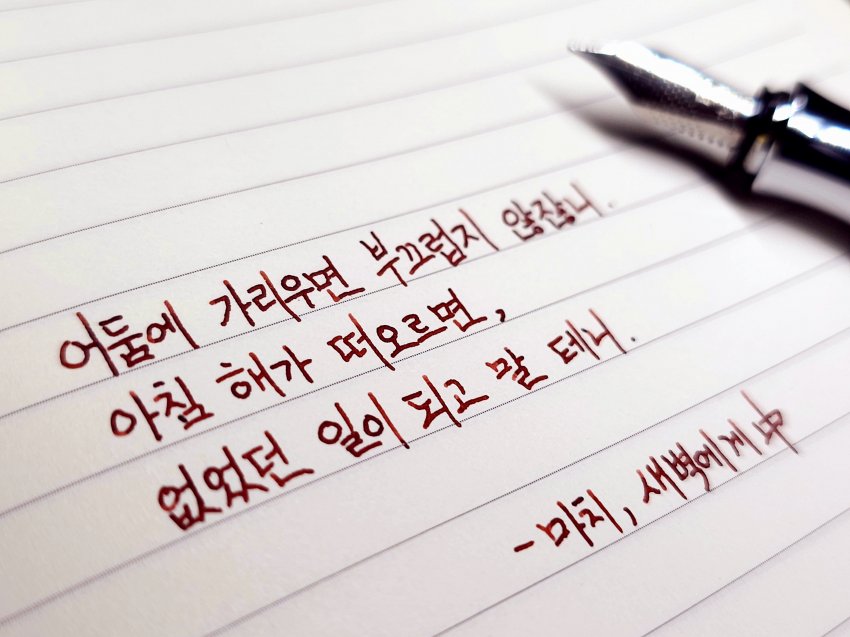 어둠에 가리우면 부끄럽지 않잖니.
아침 해가 떠오르면,
없었던 일이 되고 말 테니.
- 마치, 새벽에게 中